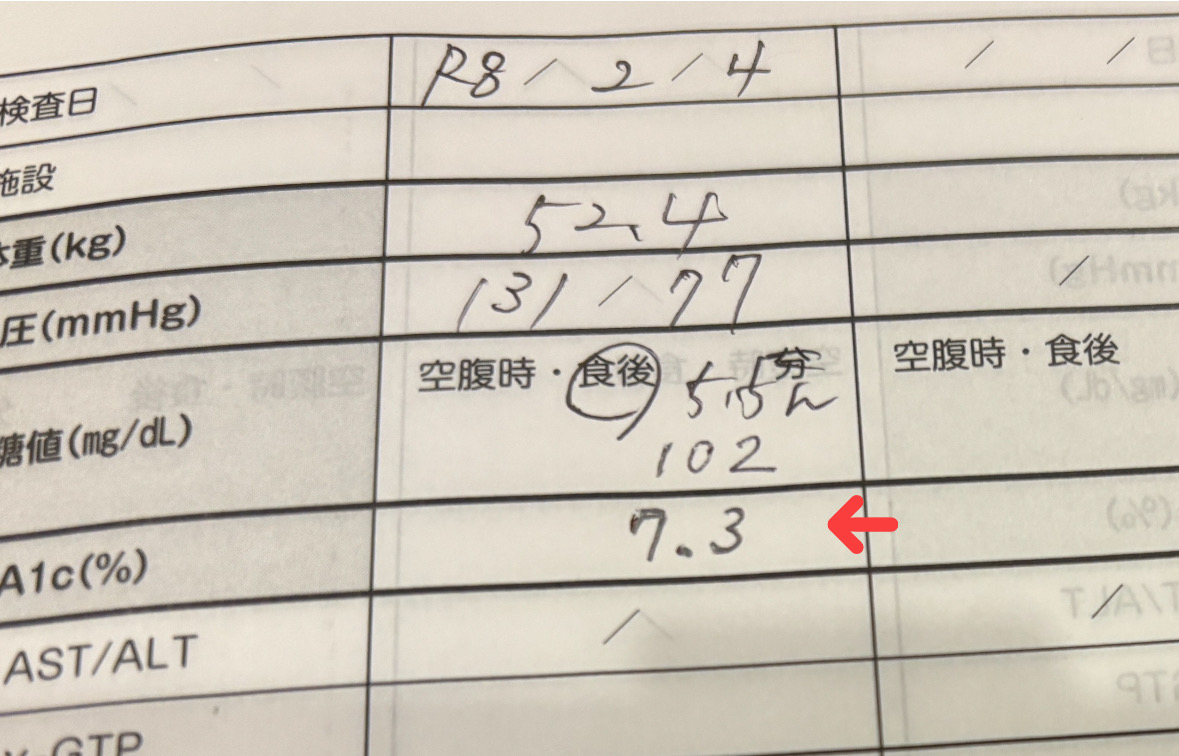 検査日 R8 / 2 / 4 / /
施設
体重(kg) 52.4
圧(mmHg) 131 / 77 /
空腹時・食後 5.5h 空腹時・食後
糖値(mg/dL) 102
A1c(%) 7.3
AST/ALT / /
γ-GTP